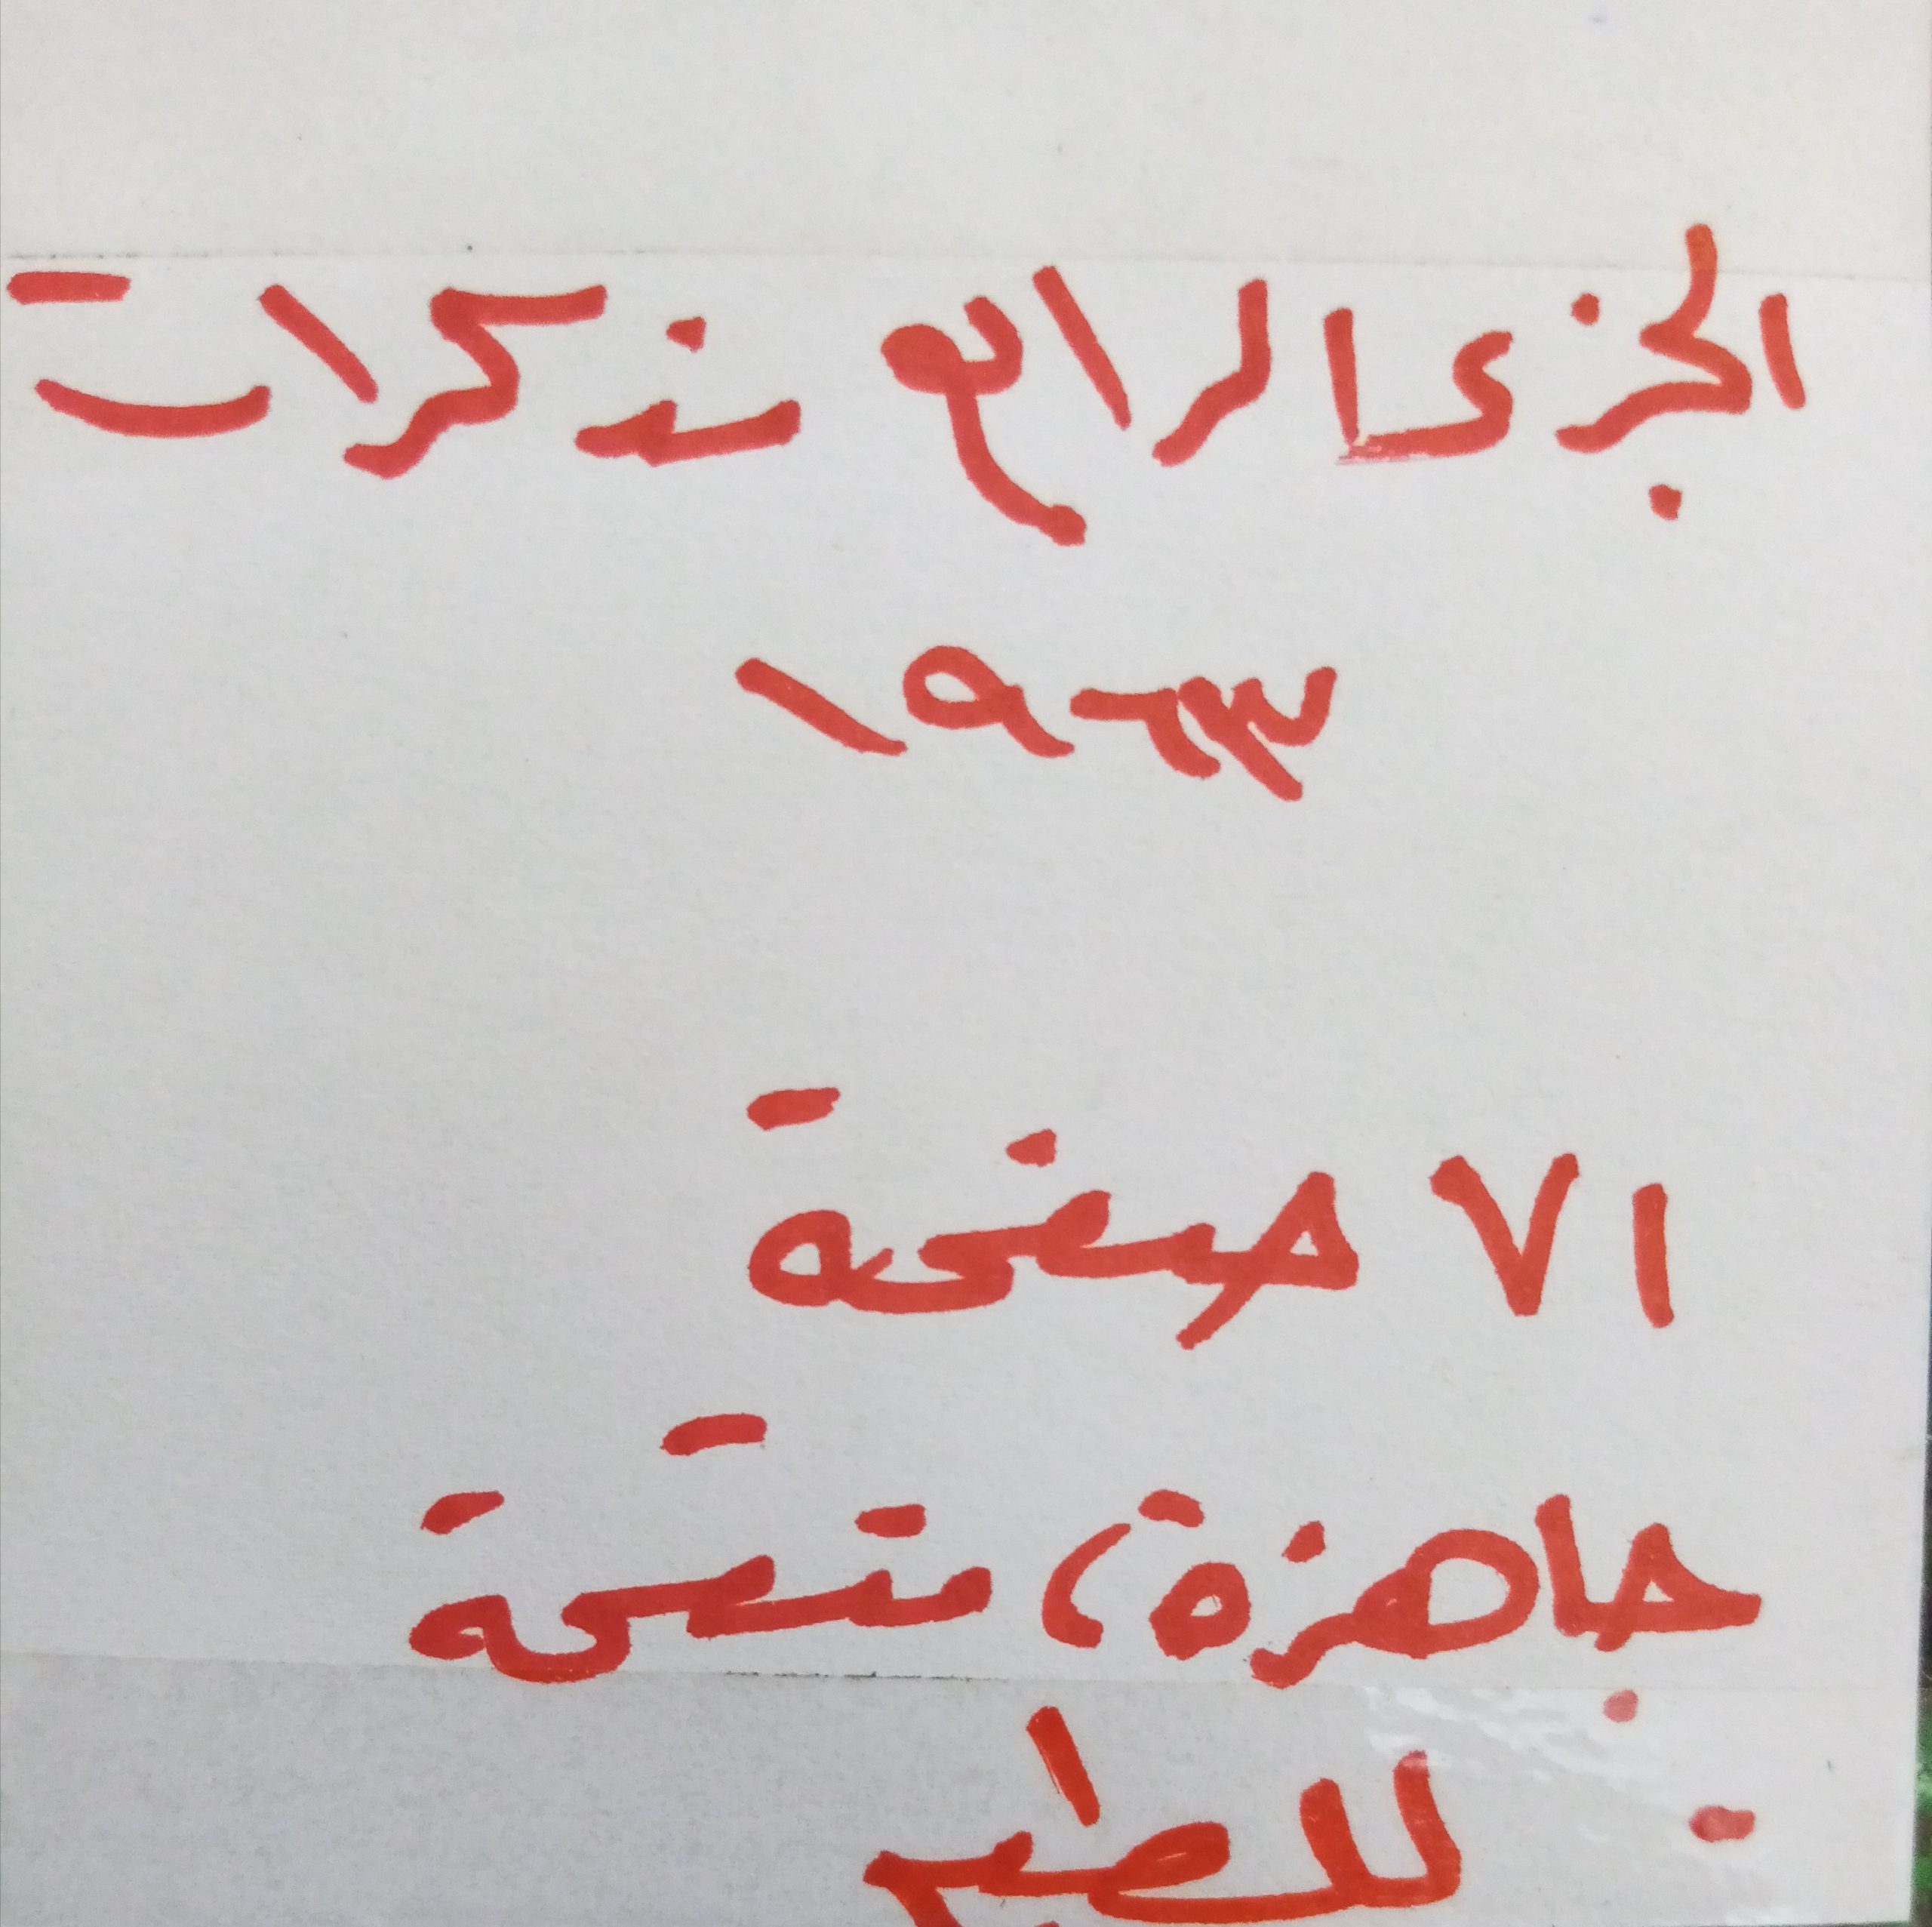 الجزى الرابع مذكرات
١٩٦٣
١٧١ صفحة
جاهزة، منقحة
للطبع